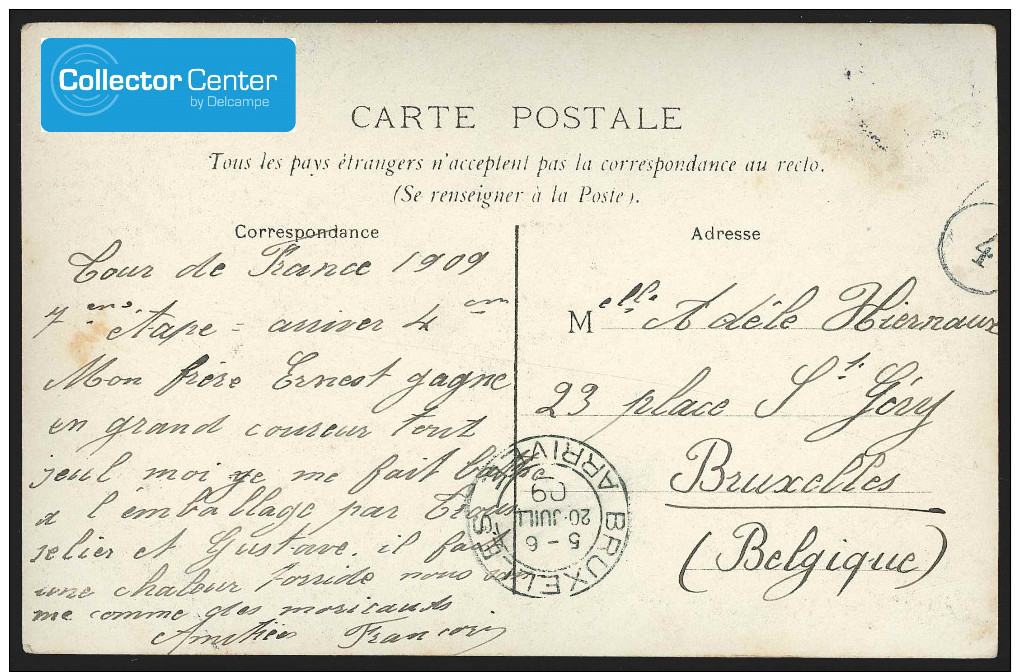 Collector Center
by Delcampe
CARTE POSTALE
Tous les pays étrangers n'acceptent pas la correspondance au recto.
(Se renseigner à la Poste).
Correspondance
Tour de France 1909
7 em étape = arriver 4 em
Mon frère Ernest gagne
en grand coureur tout
seul moi je me fait
a l'emballage par Trous
selier et Gustave. il fait
une chaleur torride nous
comme des moricauds
Amitiées François
Adresse
Melle Adéle Hiernaux
23 place St Géry
Bruxelles
(Belgique)
4
BRUXELLES
ARRIVÉE
5-6
20-JUIL
09